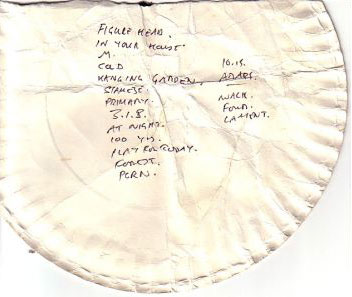 FIGURE HEAD.
IN YOUR HOUSE.
M.
COLD
HANGING GARDEN.
SIAMESE.
PRIMARY.
3.I.B.
AT NIGHT.
100 YRS.
PLAY FOR TODAY.
FOREST.
PORN.
10.15.
WALK.
LAMENT.